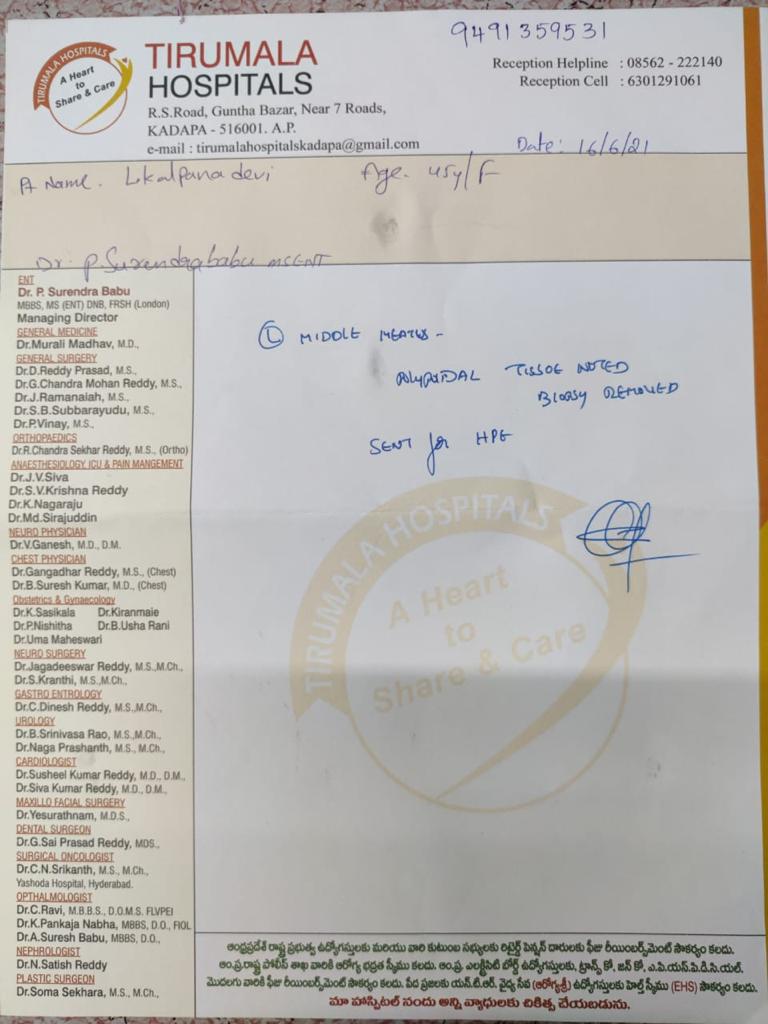 9491359531
TIRUMALA HOSPITALS
A Heart
to
Share & Care
TIRUMALA
HOSPITALS
R.S.Road, Guntha Bazar, Near 7 Roads,
KADAPA - 516001. A.P.
e-mail : tirumalahospitalskadapa@gmail.com
Reception Helpline : 08562 - 222140
Reception Cell : 6301291061
Date: 16/6/21
Pt Name. L.kalpana devi Age. 45y/F
Dr. P.Surendrababu MSENT
ENT
Dr. P. Surendra Babu
MBBS, MS (ENT) DNB, FRSH (London)
Managing Director
GENERAL MEDICINE
Dr.Murali Madhav, M.D.,
GENERAL SURGERY
Dr.D.Reddy Prasad, M.S.,
Dr.G.Chandra Mohan Reddy, M.S.,
Dr.J.Ramanaiah, M.S.,
Dr.S.B.Subbarayudu, M.S.,
Dr.P.Vinay, M.S.,
ORTHOPAEDICS
Dr.R.Chandra Sekhar Reddy, M.S., (Ortho)
ANAESTHESIOLOGY, ICU & PAIN MANGEMENT
Dr.J.V.Siva
Dr.S.V.Krishna Reddy
Dr.K.Nagaraju
Dr.Md.Sirajuddin
NEURO PHYSICIAN
Dr.V.Ganesh, M.D., D.M.
CHEST PHYSICIAN
Dr.Gangadhar Reddy, M.S., (Chest)
Dr.B.Suresh Kumar, M.D., (Chest)
Obstetrics & Gynaecology
Dr.K.Sasikala Dr.Kiranmaie
Dr.P.Nishitha Dr.B.Usha Rani
Dr.Uma Maheswari
NEURO SURGERY
Dr.Jagadeeswar Reddy, M.S.,M.Ch.,
Dr.S.Kranthi, M.S.,M.Ch.,
GASTRO ENTROLOGY
Dr.C.Dinesh Reddy, M.S.,M.Ch.,
UROLOGY
Dr.B.Srinivasa Rao, M.S.,M.Ch.,
Dr.Naga Prashanth, M.S., M.Ch.,
CARDIOLOGIST
Dr.Susheel Kumar Reddy, M.D., D.M.,
Dr.Siva Kumar Reddy, M.D., D.M.,
MAXILLO FACIAL SURGERY
Dr.Yesurathnam, M.D.S.,
DENTAL SURGEON
Dr.G.Sai Prasad Reddy, MDS.,
SURGICAL ONCOLOGIST
Dr.C.N.Srikanth, M.S., M.Ch.,
Yashoda Hospital, Hyderabad.
OPTHALMOLOGIST
Dr.C.Ravi, M.B.B.S., D.O.M.S. FLVPEI
Dr.K.Pankaja Nabha, MBBS, D.O., FIOL
Dr.A.Suresh Babu, MBBS, D.O.,
NEPHROLOGIST
Dr.N.Satish Reddy
PLASTIC SURGEON
Dr.Soma Sekhara, M.S., M.Ch.,
Ⓛ MIDDLE MEATUS -
POLYPOIDAL TISSUE NOTED
BIOPSY REMOVED
SENT for HPE
TIRUMALA HOSPITALS
A Heart
to
Share & Care
ఆంధ్రప్రదేశ్ రాష్ట్ర ప్రభుత్వ ఉద్యోగస్తులకు మరియు వారి కుటుంబ సభ్యులకు రిటైర్డ్ పెన్షన్ దారులకు ఫీజు రీయింబర్స్‌మెంట్ సౌకర్యం కలదు.
ఆం.ప్ర.రాష్ట్ర పోలీస్ శాఖ వారికి ఆరోగ్య భద్రత స్కీము కలదు. ఆం.ప్ర. ఎలక్ట్రిసిటీ బోర్డ్ ఉద్యోగస్తులకు, ట్రాన్స్ కో, జన్ కో, ఎ.పి.యస్.పి.డి.సి.యల్.
మొదలగు వారికి ఫీజు రీయింబర్స్‌మెంట్ సౌకర్యం కలదు. పేద ప్రజలకు యన్.టి.ఆర్. వైద్య సేవ (ఆరోగ్యశ్రీ) ఉద్యోగస్తులకు హెల్త్ స్కీము (EHS) సౌకర్యం కలదు.
మా హాస్పిటల్ నందు అన్ని వ్యాధులకు చికిత్స చేయబడును.